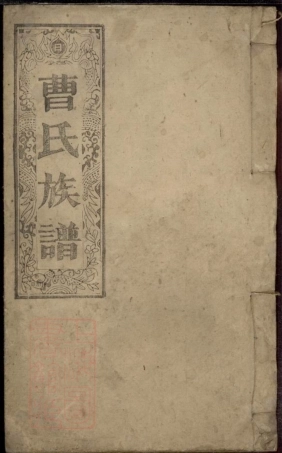 曹氏族譜